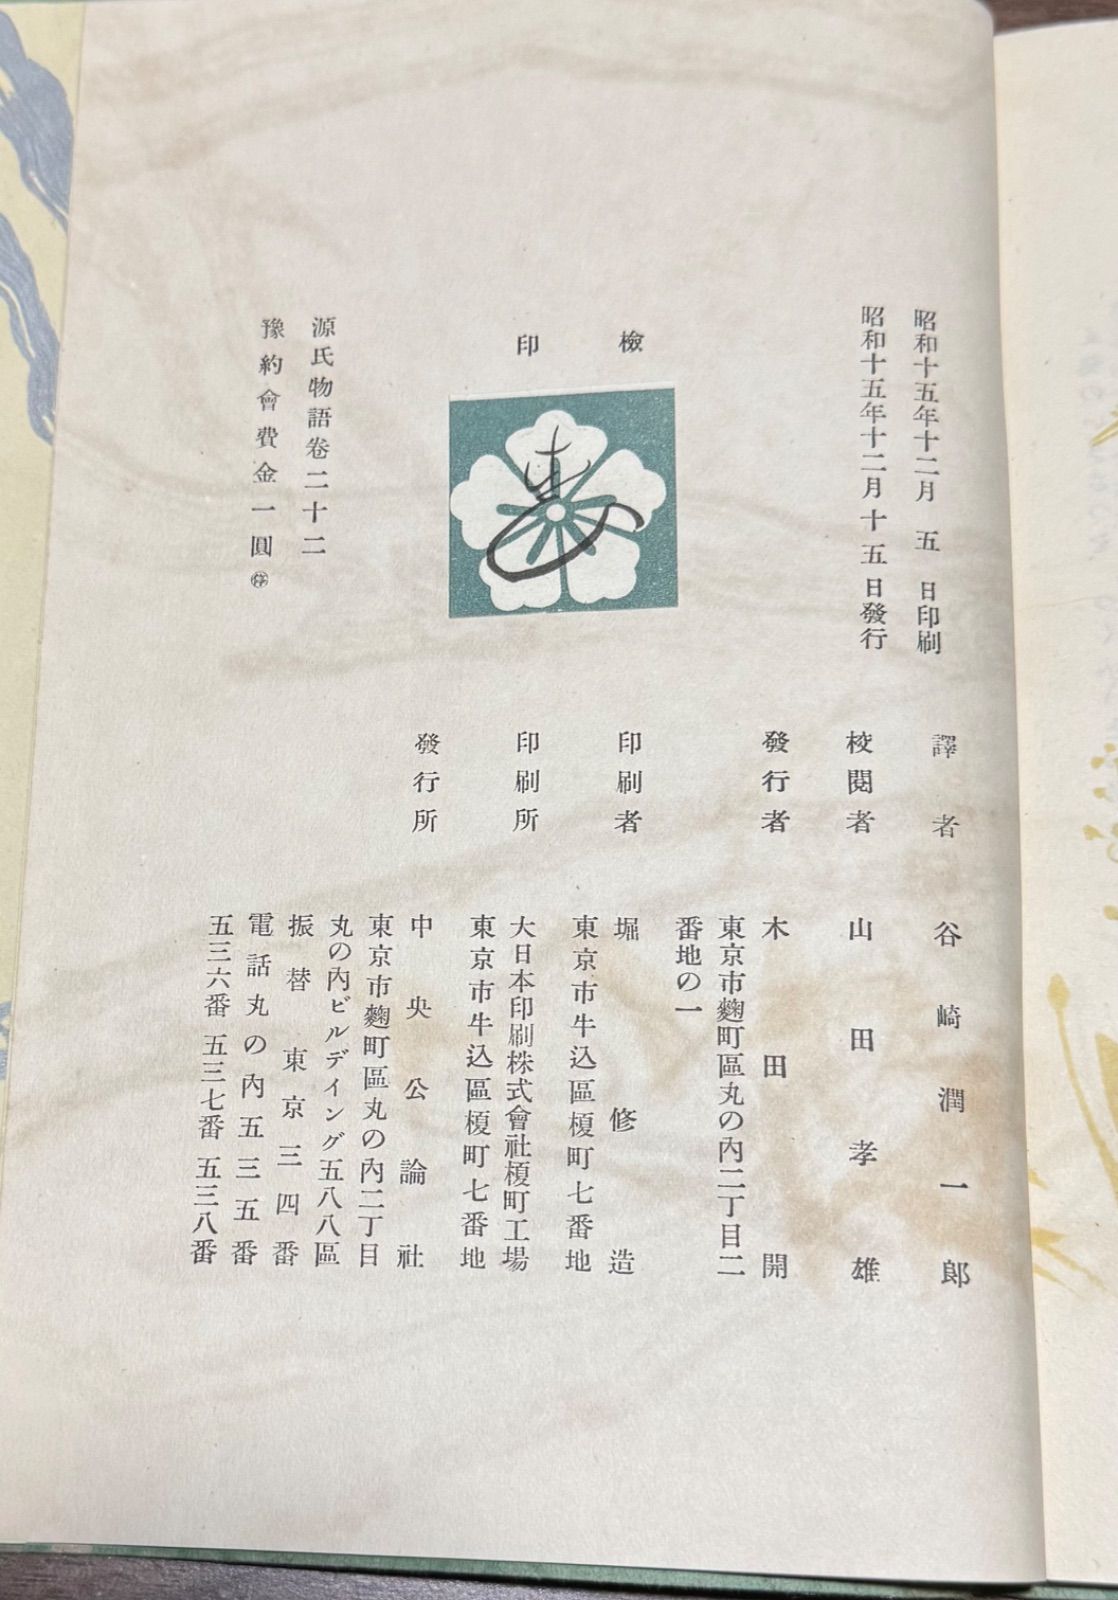 昭和十五年十二月　五　日印刷
昭和十五年十二月十五日發行
檢
印
源氏物語卷二十二
豫約會費金一圓㊕
譯者
谷崎潤一郎
校閱者
山田孝雄
發行者
木田開
東京市麴町區丸の內二丁目二
番地の一
印刷者
堀修造
東京市牛込區榎町七番地
印刷所
大日本印刷株式會社榎町工場
東京市牛込區榎町七番地
發行所
中央公論社
東京市麴町區丸の內二丁目
丸の內ビルデイング五八八區
振替東京三四番
電話丸の內五三五番
五三六番 五三七番 五三八番